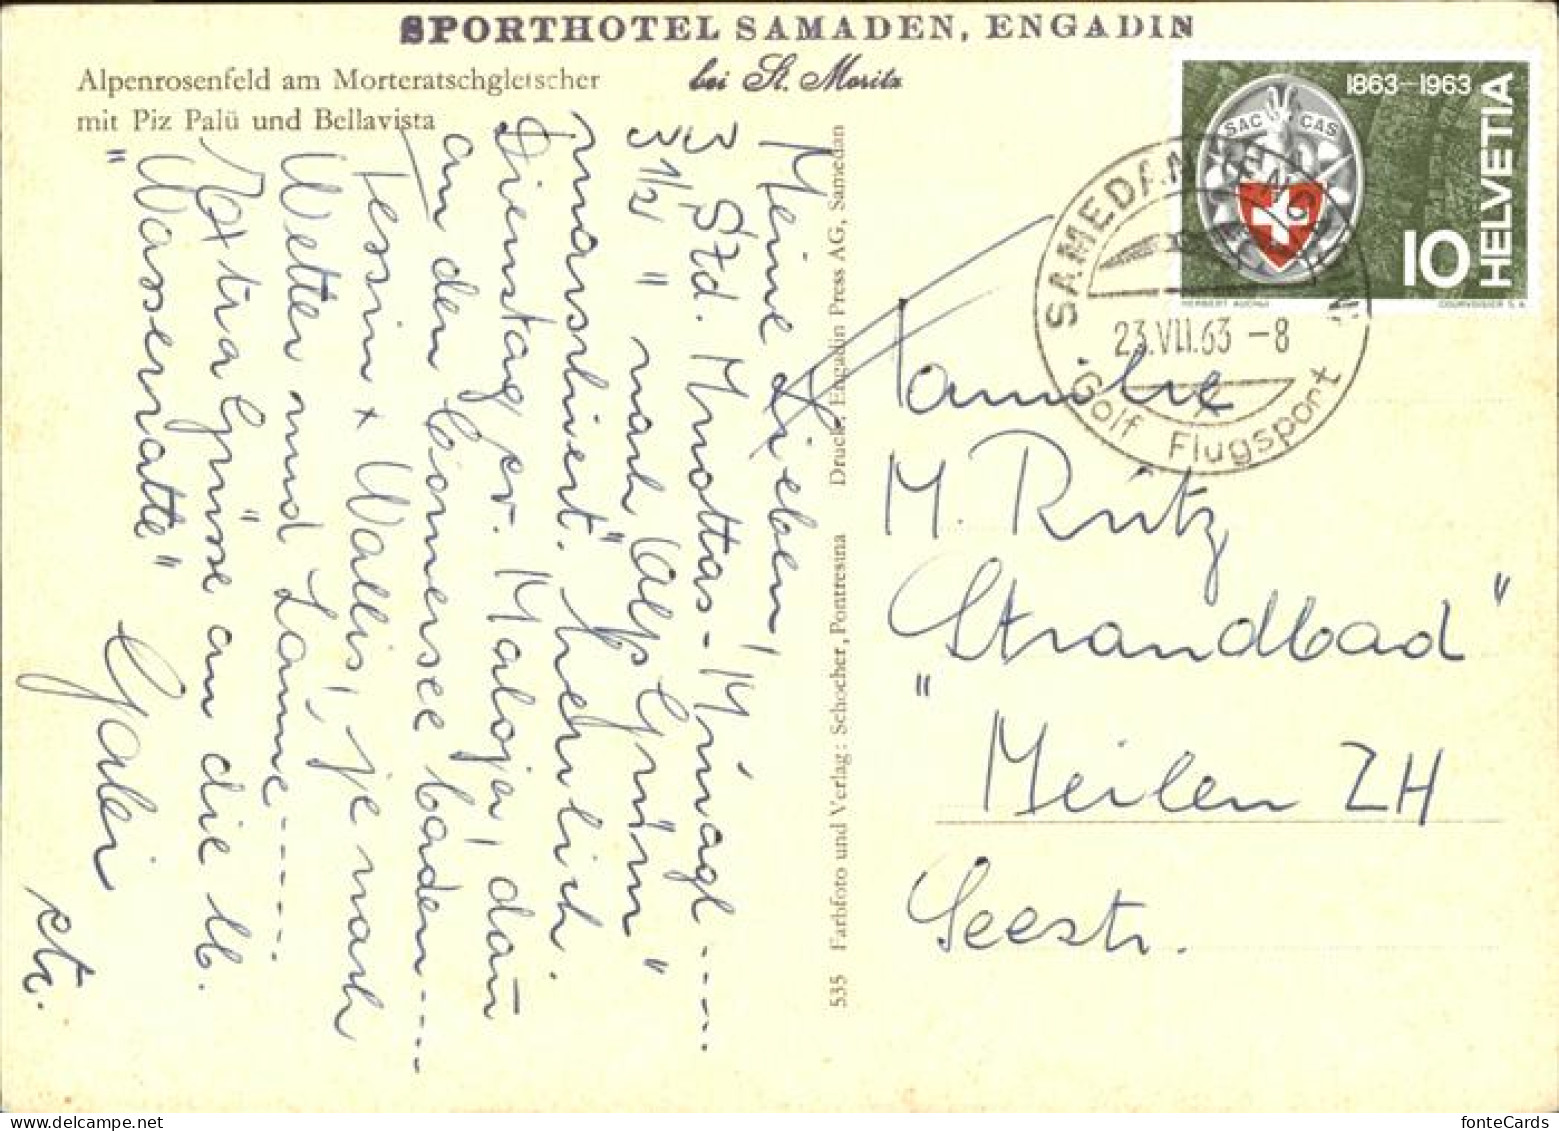 SPORTHOTEL SAMADEN, ENGADIN
bei St. Moritz
Alpenrosenfeld am Morteratschgletscher
mit Piz Palü und Bellavista
Meine Lieben!
3 Std. Muottas-Muragl -----
3 1/2 " nach "Alp Grüm"
marschiert. herrlich.
Dienstag fr. Maloja, dan
an den Comersee baden ----
Tessin + Wallis, je nach
Wetter und Laune -------
Extra Grüsse an die lb.
"Wasserratte"
etc.
535 Farbfoto und Verlag: Schocher, Pontresina Druck: Engadin Press AG, Samedan
1863–1963
SAC CAS
HELVETIA
10
HERBERT AUCHLI
COURVOISIER S.A.
SAMEDAN
23.VII.63 –8
Golf Flugsport
Familie
M. Rütz
"Strandbad"
Meilen ZH
Seestr.
fonteCards